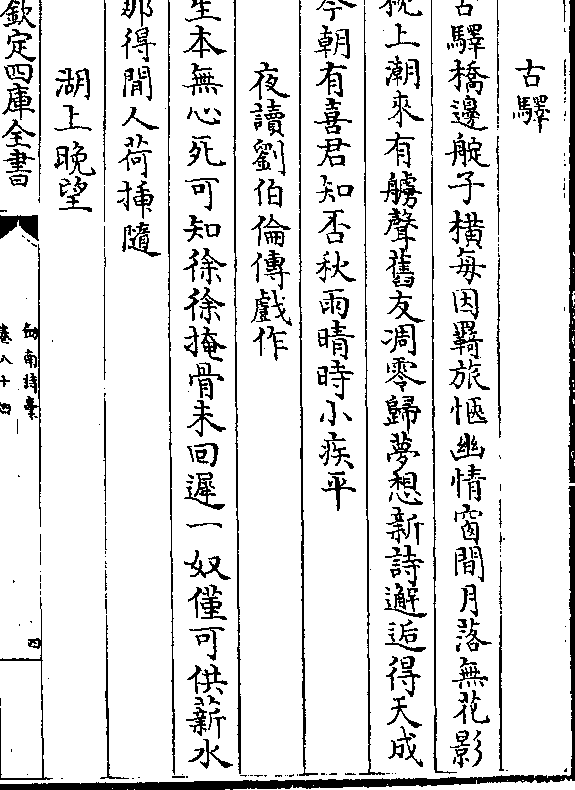 古驛
古驛橋邊艇子橫每因羇旅愜幽情窗間月落無花影
枕上潮來有艣聲舊友凋零歸夢想新詩邂逅得天成
今朝有喜君知否秋雨晴時小疾平
夜讀劉伯倫傳戲作
生本無心死可知徐徐掩骨未回遲一奴僅可供薪水
那得閒人荷揷隨
湖上晚望
欽定四庫全書
劍南詩稾
卷八十四
四